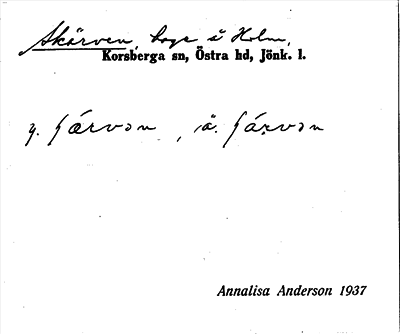 Skärven, hage å Holm,
Korsberga sn, Östra hd, Jönk. l.
y. ʃærvən , ä. ʃárvən
Annalisa Anderson 1937